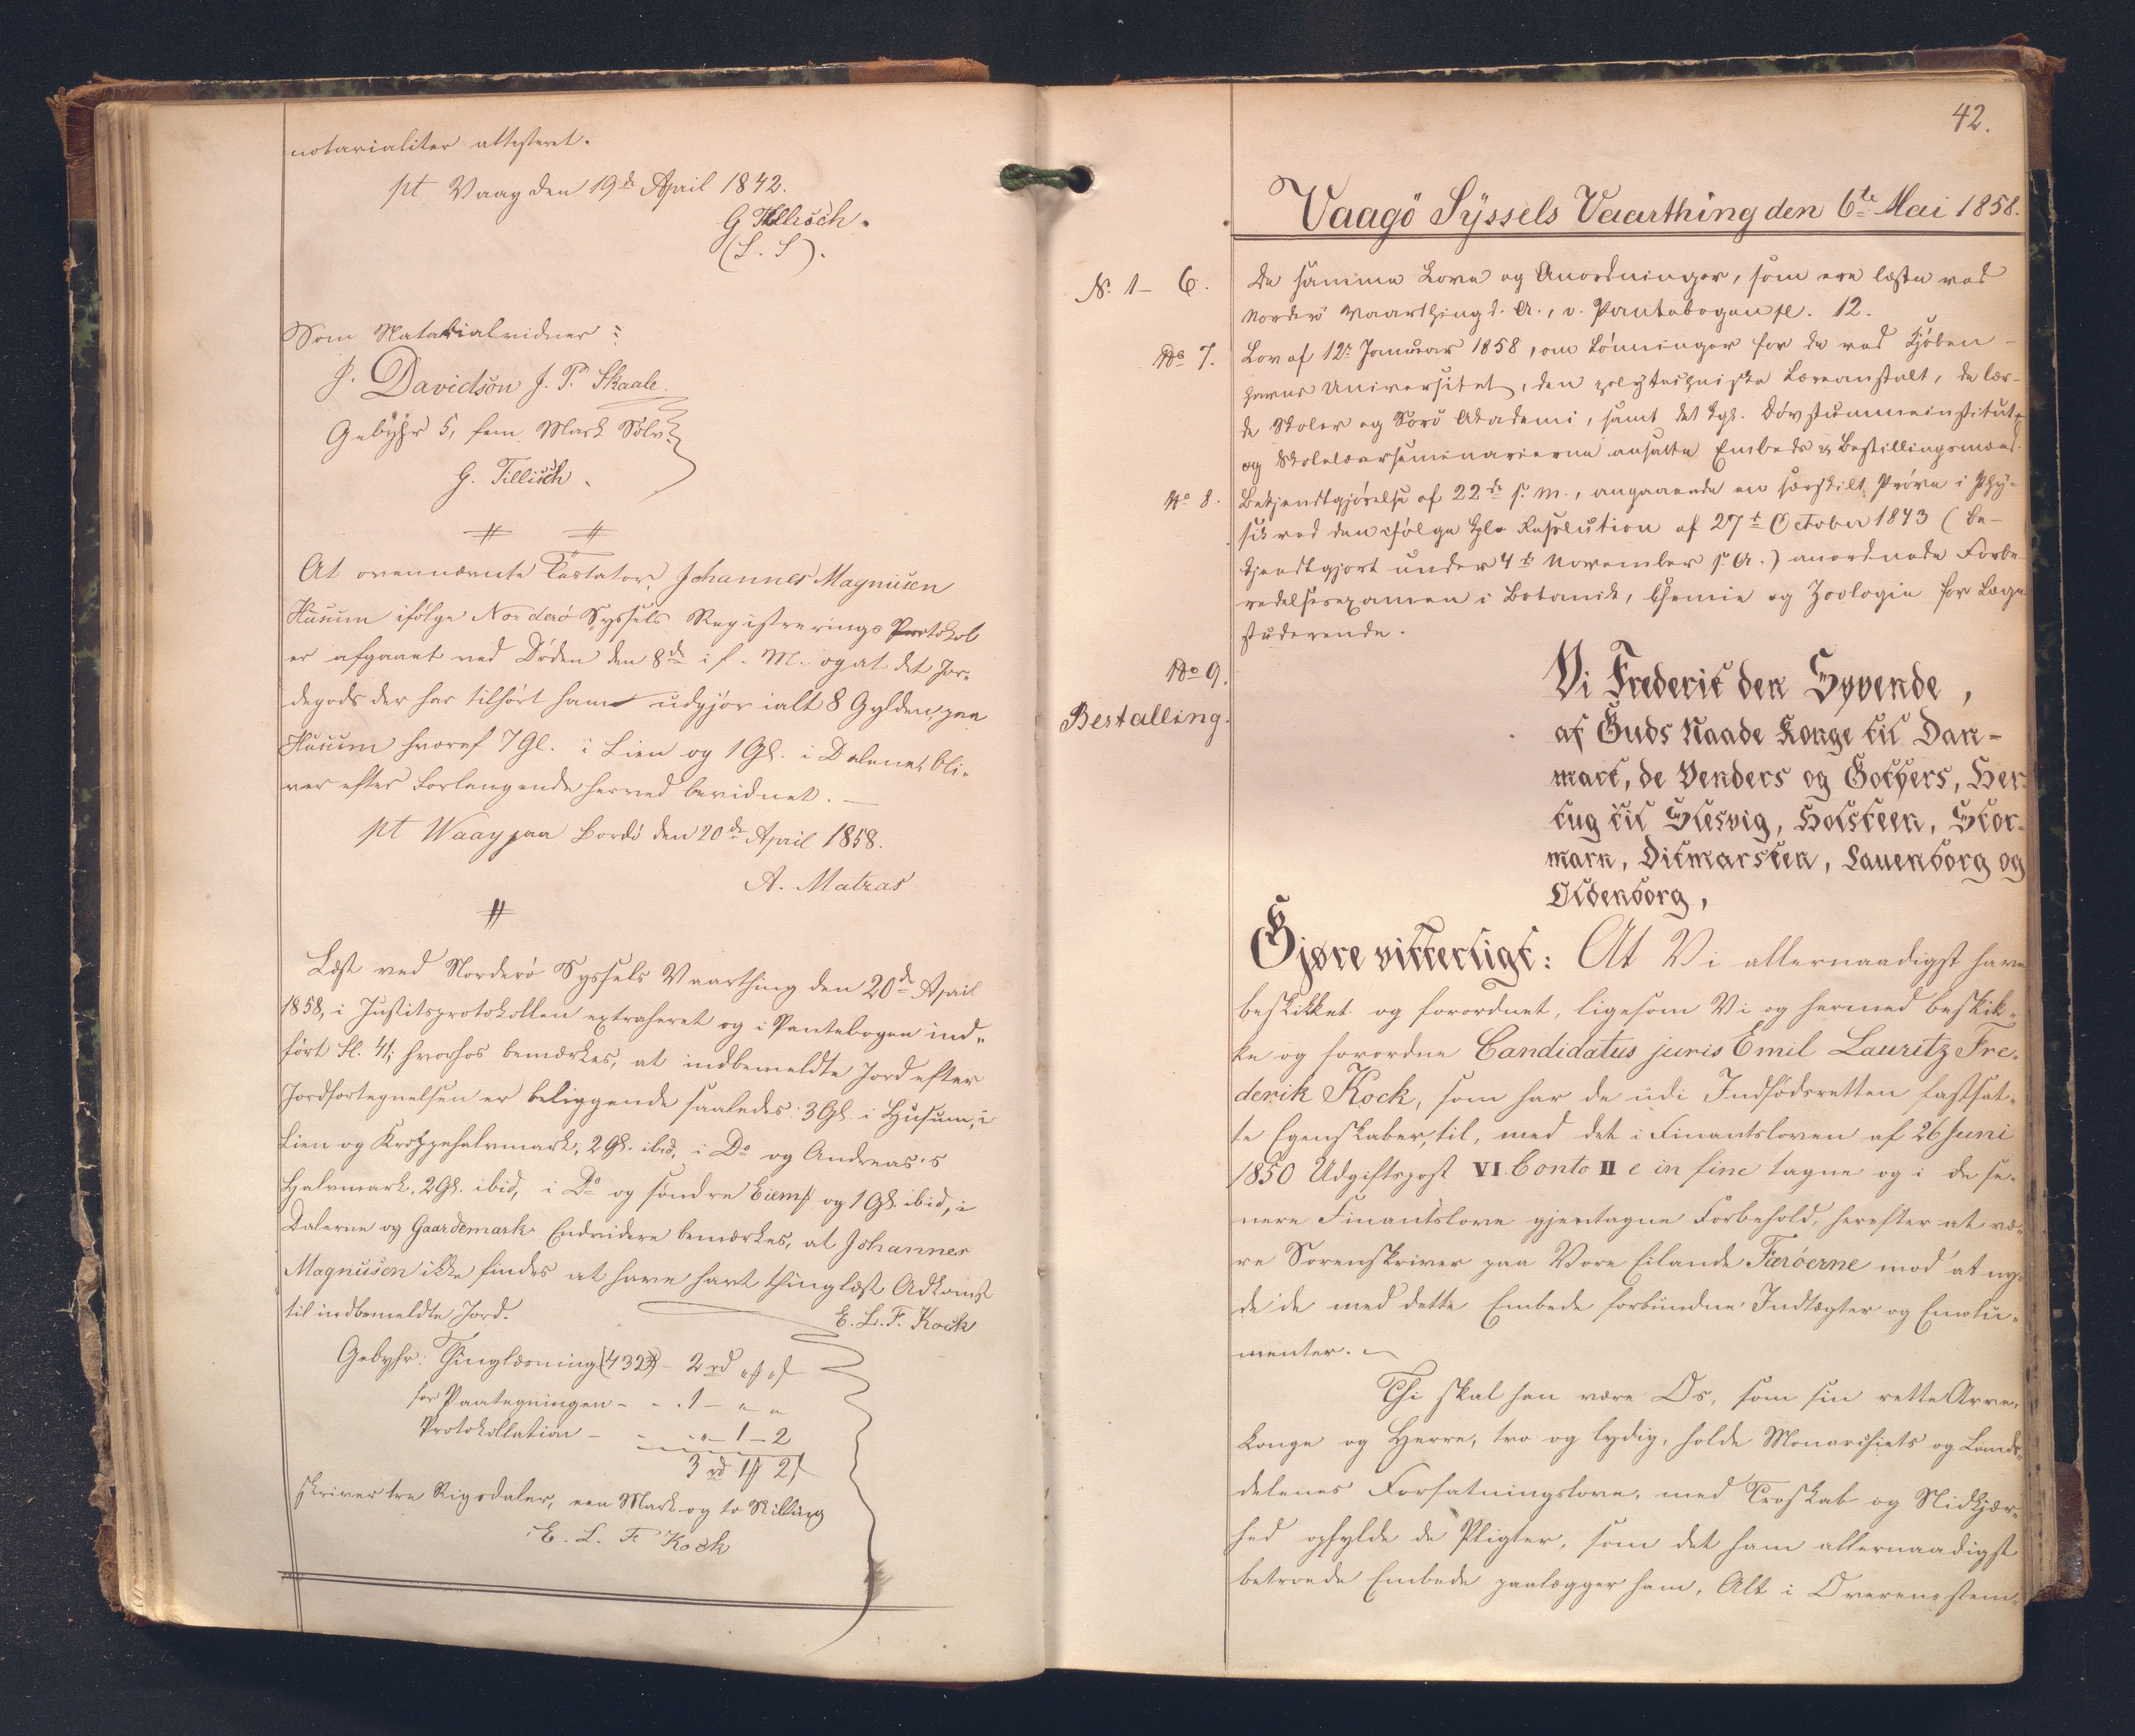 notarialiter attesteret.
pt Vaag den 19de April 1842.
G Tillisch.
(L. S).
Som Notarialvidner:
J. Davidson J. P. Skaale.
Gebyhr 5, fem Mark Sølv.
G. Tillisch.
At ovennævnte Testator, Johannes Magnusen
Husum ifølge Norderö Syssels Registrerings Protokol
er afgaaet ved Døden den 8de i f. M. og at det Jor-
degods der har tilhørt ham udgjør ialt 8 Gylden, paa
Husum hvoraf 7 Gl. i Lien og 1 Gl. i Dalene, bli-
ver efter Forlangende herved bevidnet. —
pt Waag paa Bordö den 20de April 1858.
A. Matras
Læst ved Norderö Syssels Vaarthing den 20de April
1858, i Justitsprotokollen extraheret og i Pantebogen ind-
ført fl. 41; hvorhos bemærkes, at indbemeldte Jord efter
Jordfortegnelsen er beliggende saaledes: 3 Gl. i Husum, i
Lien og Kroppehalvmark, 2 Gl. ibid, i Do og Andreas's
Halvmark, 2 Gl. ibid, i Do og søndre Eiemf og 1 Gl. ibid, i
Dalerne og Gaardemark. Endvidere bemærkes, at Johannes
Magnusen ikke findes at have havt thinglæst Adkomst
til indbemeldte Jord.
E. L. F. Kock
Gebyhr: Thinglæsning (432) - 2 rd " "
for Paategningen - - . 1 - " "
Protokollation - - " - 1 - 2
3 rd 1 2
skriver tre Rigsdaler, een Mark og to Skilling
E. L. F. Kock
42.
Vaagö Syssels Vaarthing den 6te Mai 1858.
N. 1 - 6. De samme Love og Anordninger, som ere læste ved
Norderö Vaarthing d. A., v. Pantebogen fl. 12.
No 7. Lov af 12te Januar 1858, om Lønninger for de ved Kjøben-
havns Universitet, den polytechniske Læreanstalt, de lær-
de Skoler og Sorö Akademi, samt det kgl. Døvstummeinstitut
og Skolelærerseminarierne ansatte Embeds og Bestillingsmænd.
No 8. Bekjendtgjørelse af 22de s. M., angaaende en særskilt Prøve i Phy-
sik ved den ifølge kgl. Resolution af 27de October 1843 (be-
kjendtgjort under 4de November s. A.) anordnede Forbe-
redelsesexamen i Botanik, Chemie og Zoologie for Læge-
studerende.
No 9.
Bestalling.
Vi Frederik den Syvende,
af Guds Naade Konge til Dan-
mark, de Venders og Gothers, Her-
tug til Slesvig, Holsteen, Stor-
marn, Ditmarsken, Lauenborg og
Oldenborg,
Gjøre vitterligt: At Vi allernaadigst have
beskikket og forordnet, ligesom Vi og hermed beskik-
ke og forordne Candidatus juris Emil Lauritz Fre-
derik Kock, som har de udi Indfødsretten fastsat-
te Egenskaber, til, med det i Finantsloven af 26 Juni
1850 Udgiftspost VI. Conto II e in fine tagne og i de se-
nere Finantslove gjentagne Forbehold, herefter at væ-
re Sorenskriver paa Vore Eilande Færöerne mod at ny-
de de med dette Embede forbundne Indtægter og Emolu-
menter.
Thi skal han være Os, som sin rette Arve-
Konge og Herre, tro og lydig, holde Monarchiets og Lands-
delenes Forfatningslove, med Troskab og Nidkjær-
hed opfylde de Pligter, som det ham allernaadigst
betroede Embede paalægger ham, Alt i Overensstem-